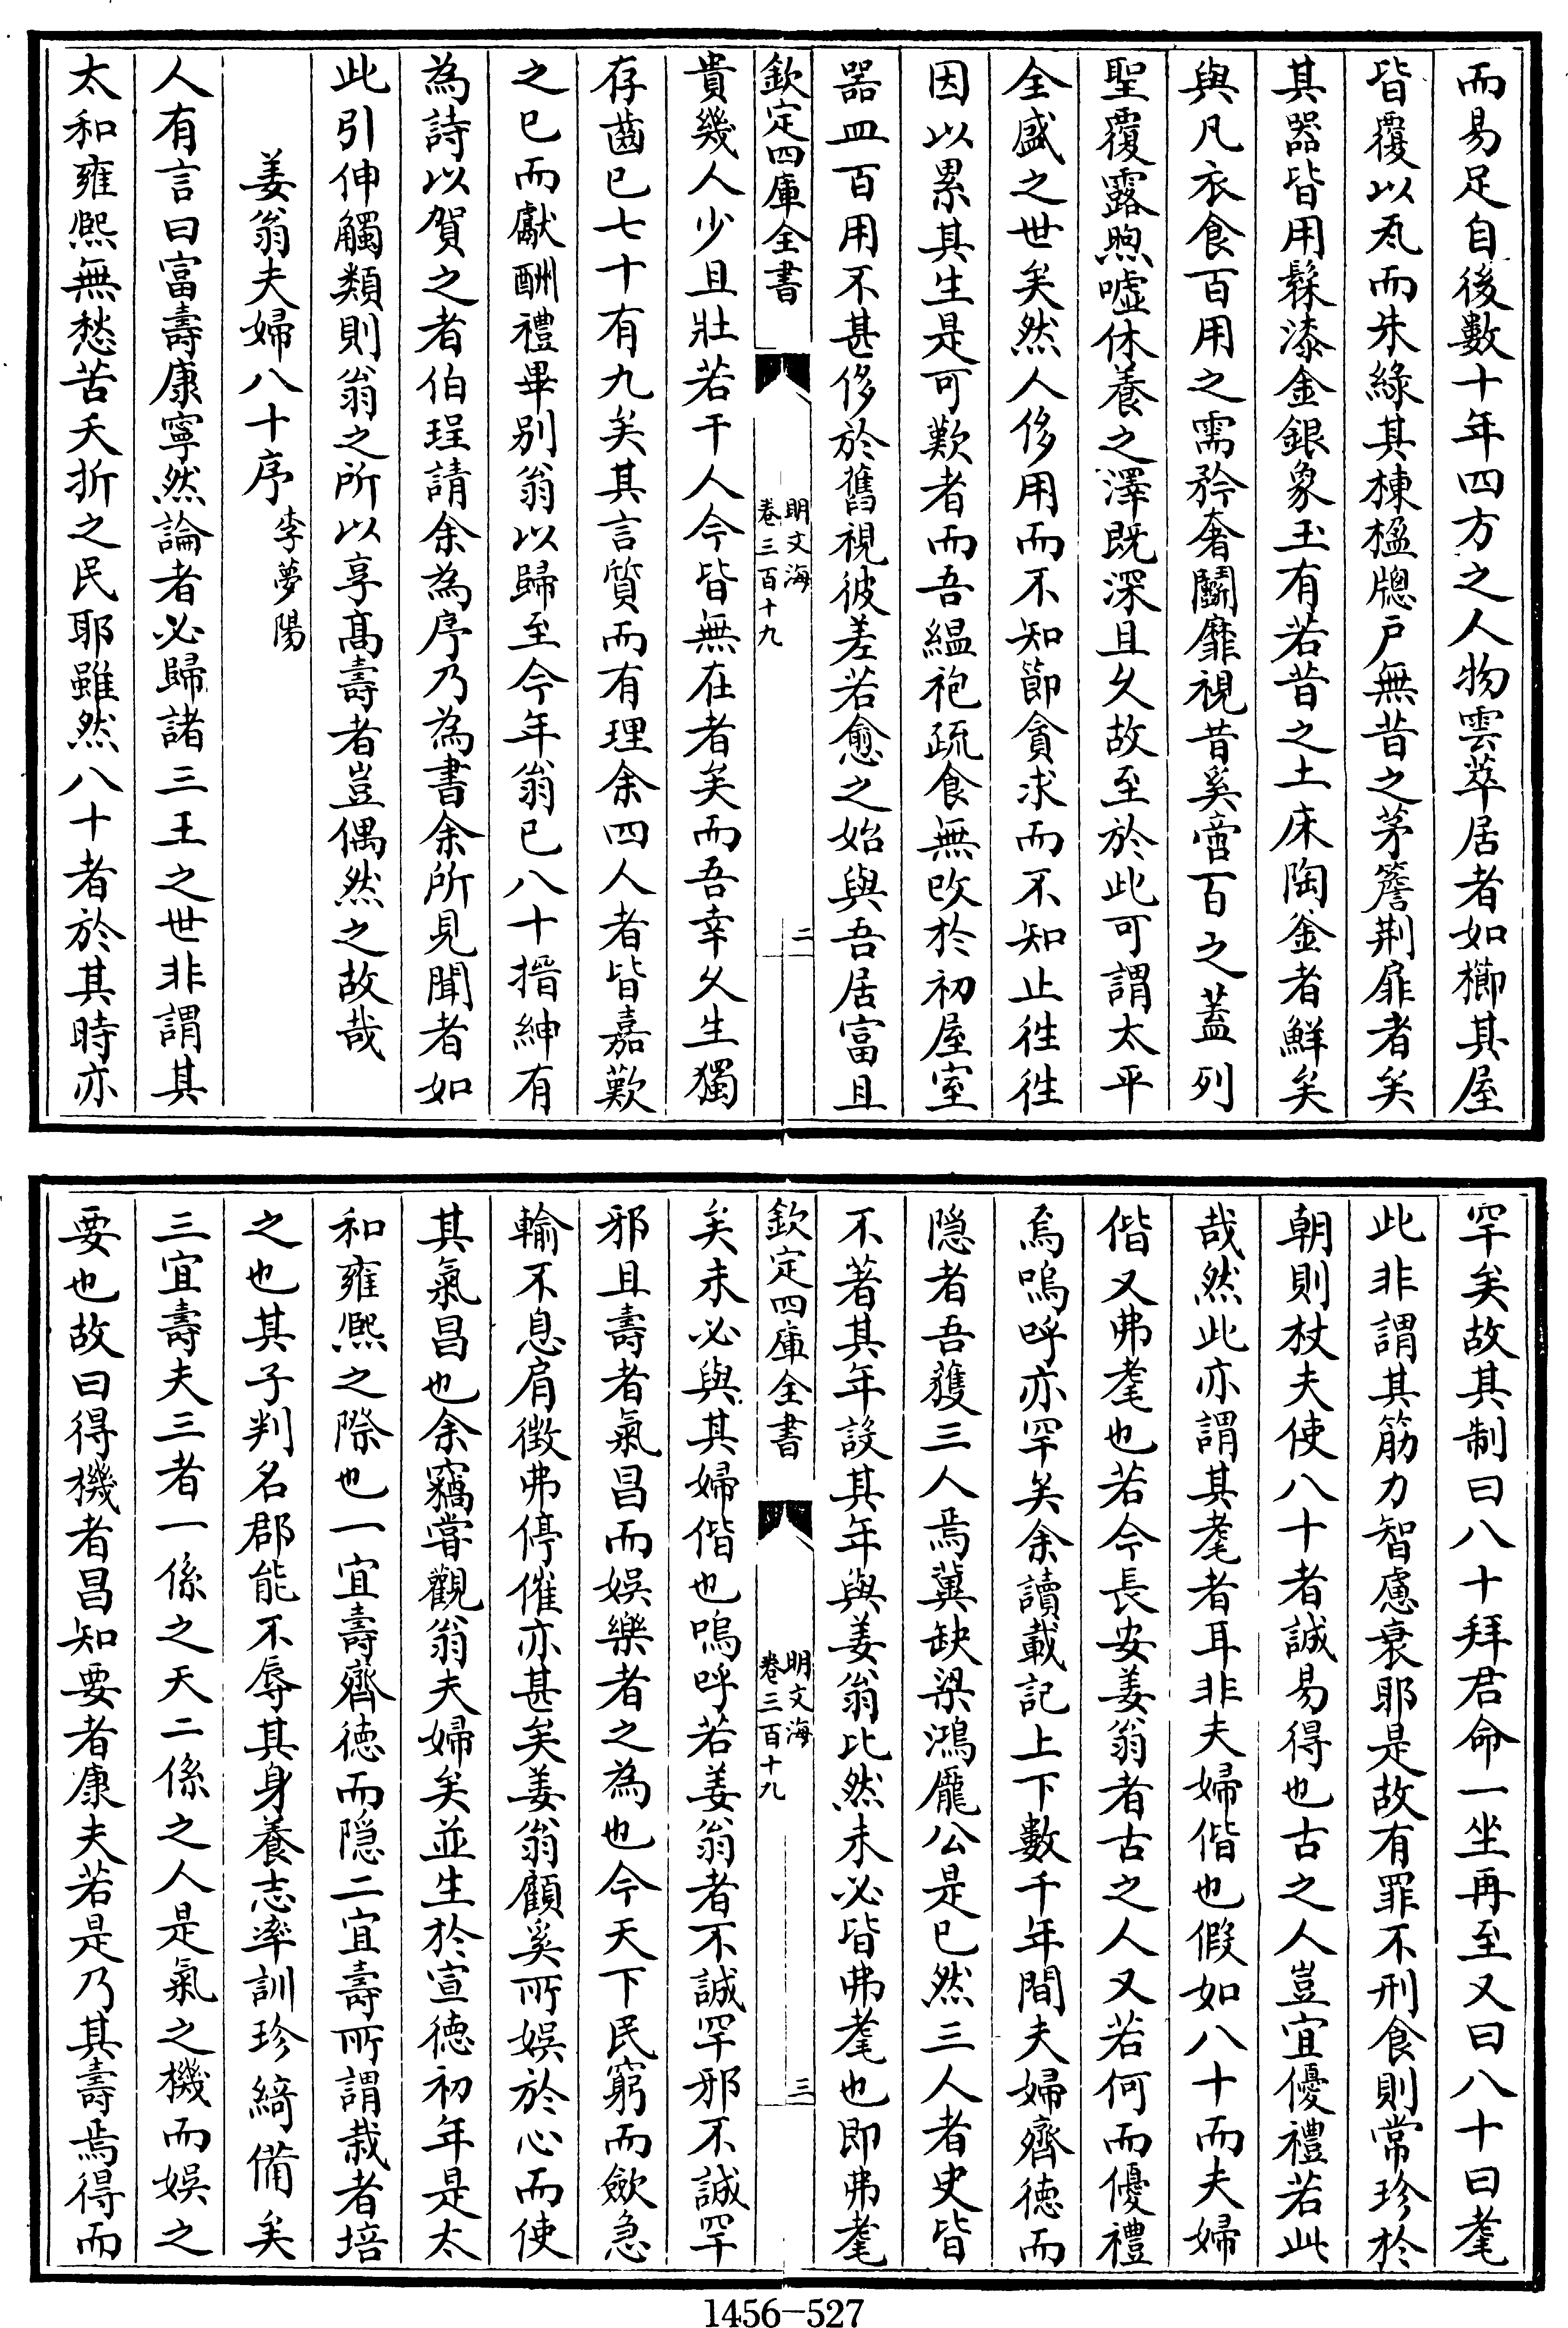 而易足自後數十年四方之人物雲萃居者如櫛其屋
皆覆以瓦而朱綠其棟楹牕戶無昔之茅簷荆扉者矣
其器皆用髹漆金銀象玉有若昔之土床陶釜者鮮矣
與凡衣食百用之需矜奢鬭靡視昔奚啻百之蓋列
聖覆露煦噓休養之澤既深且久故至於此可謂太平
全盛之世矣然人侈用而不知節貪求而不知止徃徃
因以累其生是可歎者而吾緼袍疏食無攺於初屋室
器皿百用不甚侈於舊視彼差若愈之始與吾居富且
欽定四庫全書
明文海
卷三百十九
二
貴幾人少且壯若干人今皆無在者矣而吾幸久生獨
存齒已七十有九矣其言質而有理余四人者皆嘉歎
之已而獻酬禮畢别翁以歸至今年翁已八十搢紳有
為詩以賀之者伯珵請余為序乃為書余所見聞者如
此引伸觸類則翁之所以享髙壽者豈偶然之故哉
姜翁夫婦八十序 李夢陽
人有言曰富壽康寧然論者必歸諸三王之世非謂其
太和雍熙無愁苦夭折之民耶雖然八十者於其時亦
罕矣故其制曰八十拜君命一坐再至又曰八十曰耄
此非謂其筋力智慮衰耶是故有罪不刑食則常珍於
朝則杖夫使八十者誠易得也古之人豈宜優禮若此
哉然此亦謂其耄者耳非夫婦偕也假如八十而夫婦
偕又弗耄也若今長安姜翁者古之人又若何而優禮
焉嗚呼亦罕矣余讀載記上下數千年間夫婦齊徳而
隠者吾獲三人焉冀缺梁鴻龐公是已然三人者史皆
不著其年設其年與姜翁比然未必皆弗耄也即弗耄
欽定四庫全書
明文海
卷三百十九
三
矣未必與其婦偕也嗚呼若姜翁者不誠罕邪不誠罕
邪且壽者氣昌而娱樂者之為也今天下民窮而斂急
輸不息肩徵弗停催亦甚矣姜翁顧奚所娱於心而使
其氣昌也余竊嘗觀翁夫婦矣並生於宣徳初年是太
和雍熙之際也一宜壽齊徳而隠二宜壽所謂栽者培
之也其子判名郡能不辱其身養志率訓珍綺備矣
三宜壽夫三者一係之天二係之人是氣之機而娱之
要也故曰得機者昌知要者康夫若是乃其壽焉得而
1456-527